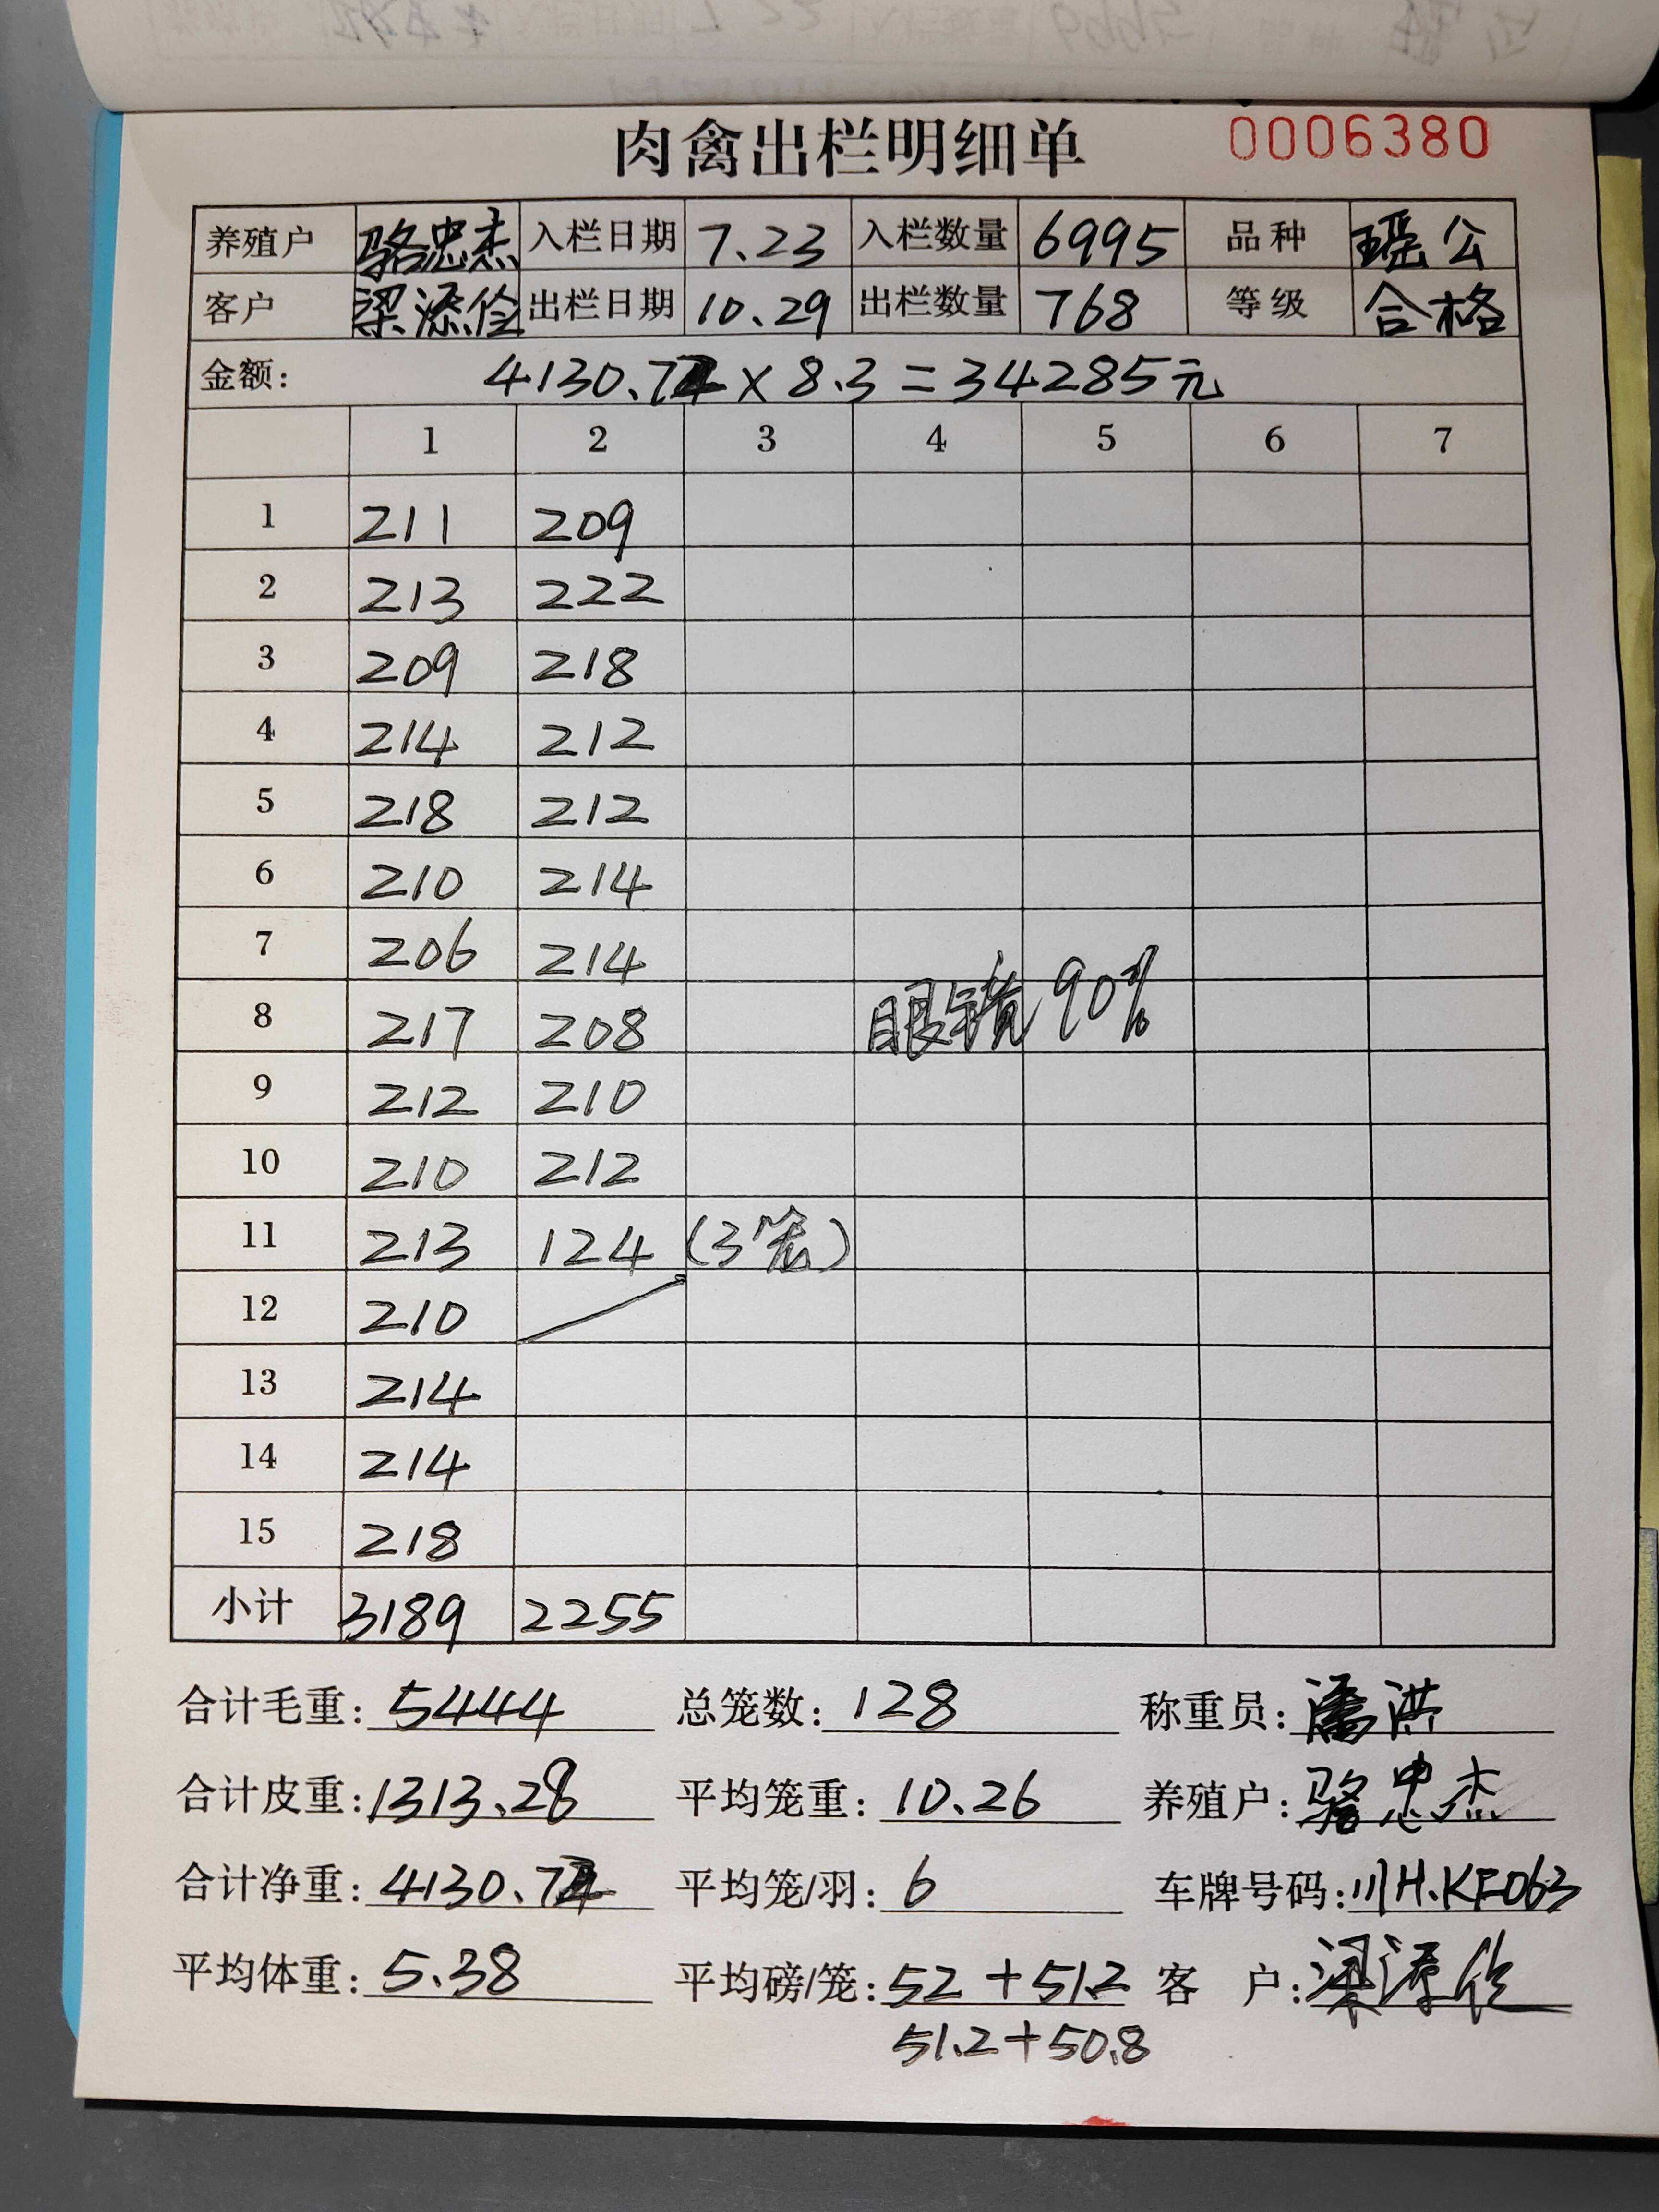 肉禽出栏明细单 0006380
养殖户 骆忠杰 入栏日期 7.23 入栏数量 6995 品种 瑶公
客户 梁添俭 出栏日期 10.29 出栏数量 768 等级 合格
金额: 4130.72 × 8.3 = 34285元
1 2 3 4 5 6 7
1 211 209
2 213 222
3 209 218
4 214 212
5 218 212
6 210 214
7 206 214
8 217 208 眼镜90%
9 212 210
10 210 212
11 213 124 (3笼)
12 210
13 214
14 214
15 218
小计 3189 2255
合计毛重: 5444 总笼数: 128 称重员: 潘洪
合计皮重: 1313.28 平均笼重: 10.26 养殖户: 骆忠杰
合计净重: 4130.72 平均笼/羽: 6 车牌号码: 川H.KF063
平均体重: 5.38 平均磅/笼: 52 + 51.2 客 户: 梁添俭
51.2+50.8